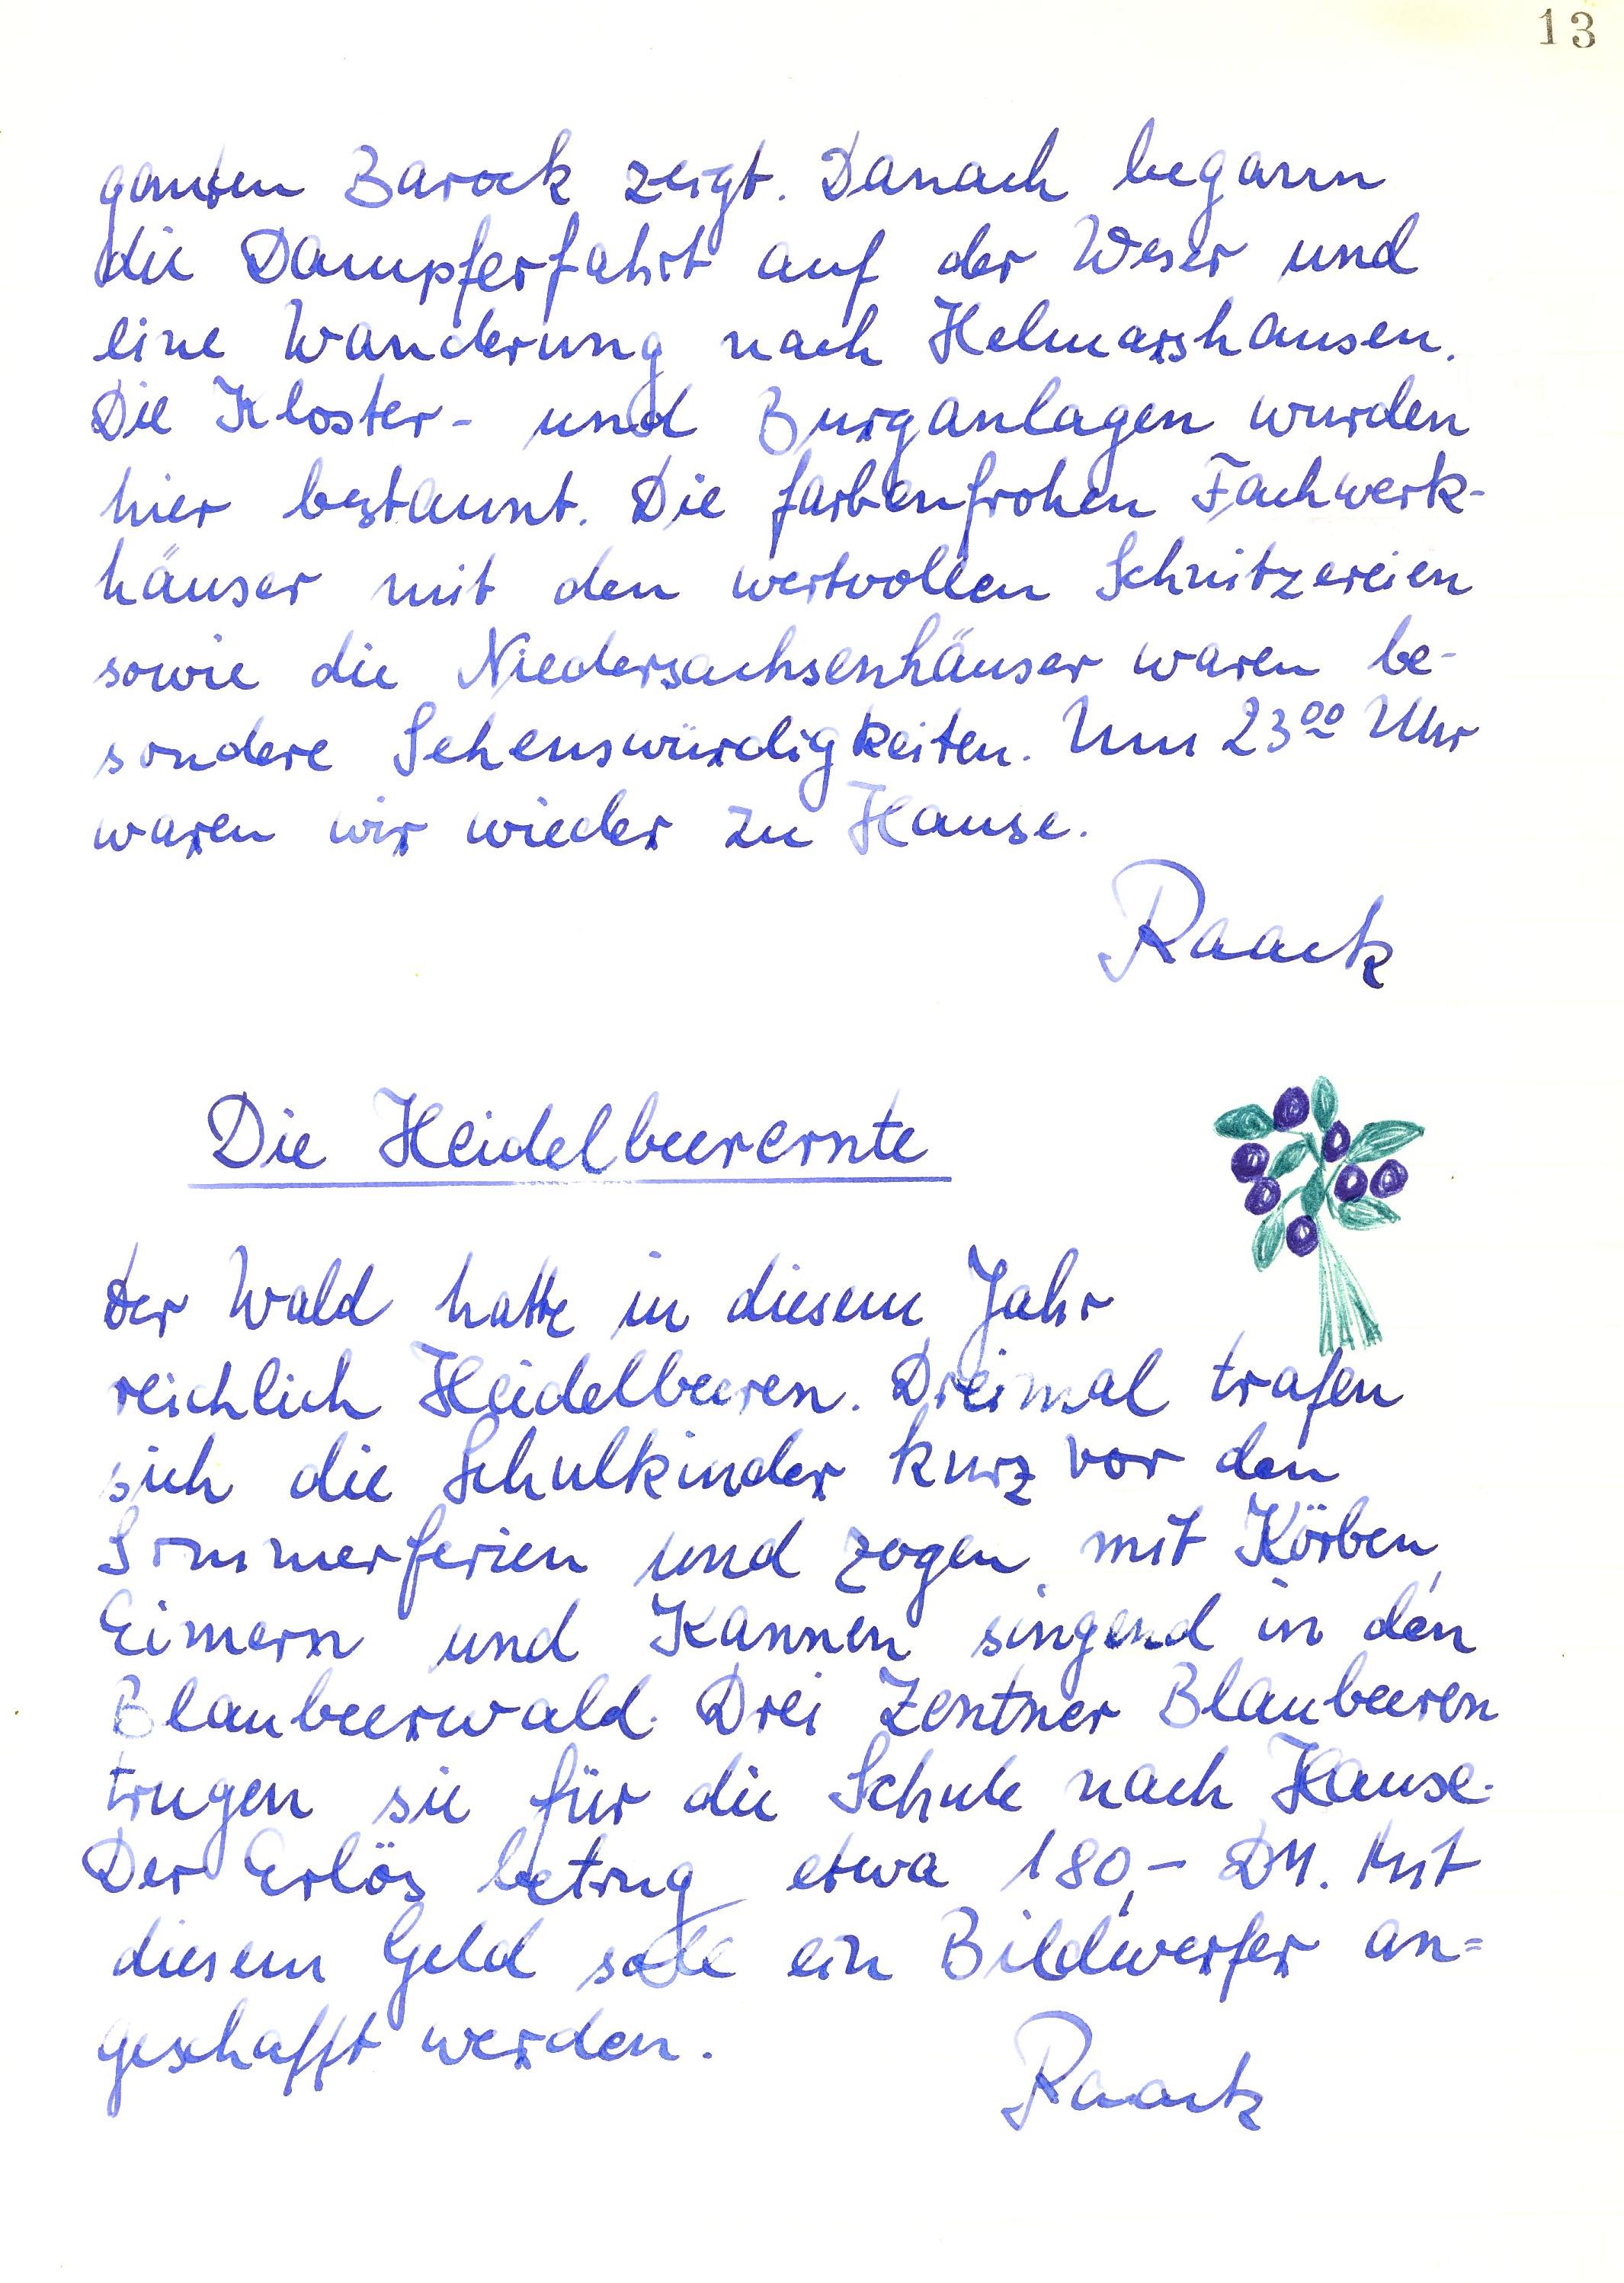 13
ganten Barock zeigt. Danach begann
die Dampferfahrt auf der Weser und
eine Wanderung nach Helmarshausen.
Die Kloster- und Burganlagen wurden
hier bestaunt. Die farbenfrohen Fachwerk-
häuser mit den wertvollen Schnitzereien
sowie die Niedersachsenhäuser waren be-
sondere Sehenswürdigkeiten. Um 23⁰⁰ Uhr
waren wir wieder zu Hause.
Raack
Die Heidelbeerernte
Der Wald hatte in diesem Jahr
reichlich Heidelbeeren. Dreimal trafen
sich die Schulkinder kurz vor den
Sommerferien und zogen mit Körben,
Eimern und Kannen singend in den
Blaubeerwald. Drei Zentner Blaubeeren
trugen sie für die Schule nach Hause.
Der Erlös betrug etwa 180,- DM. Mit
diesem Geld soll ein Bildwerfer an=
geschafft werden.
Raack